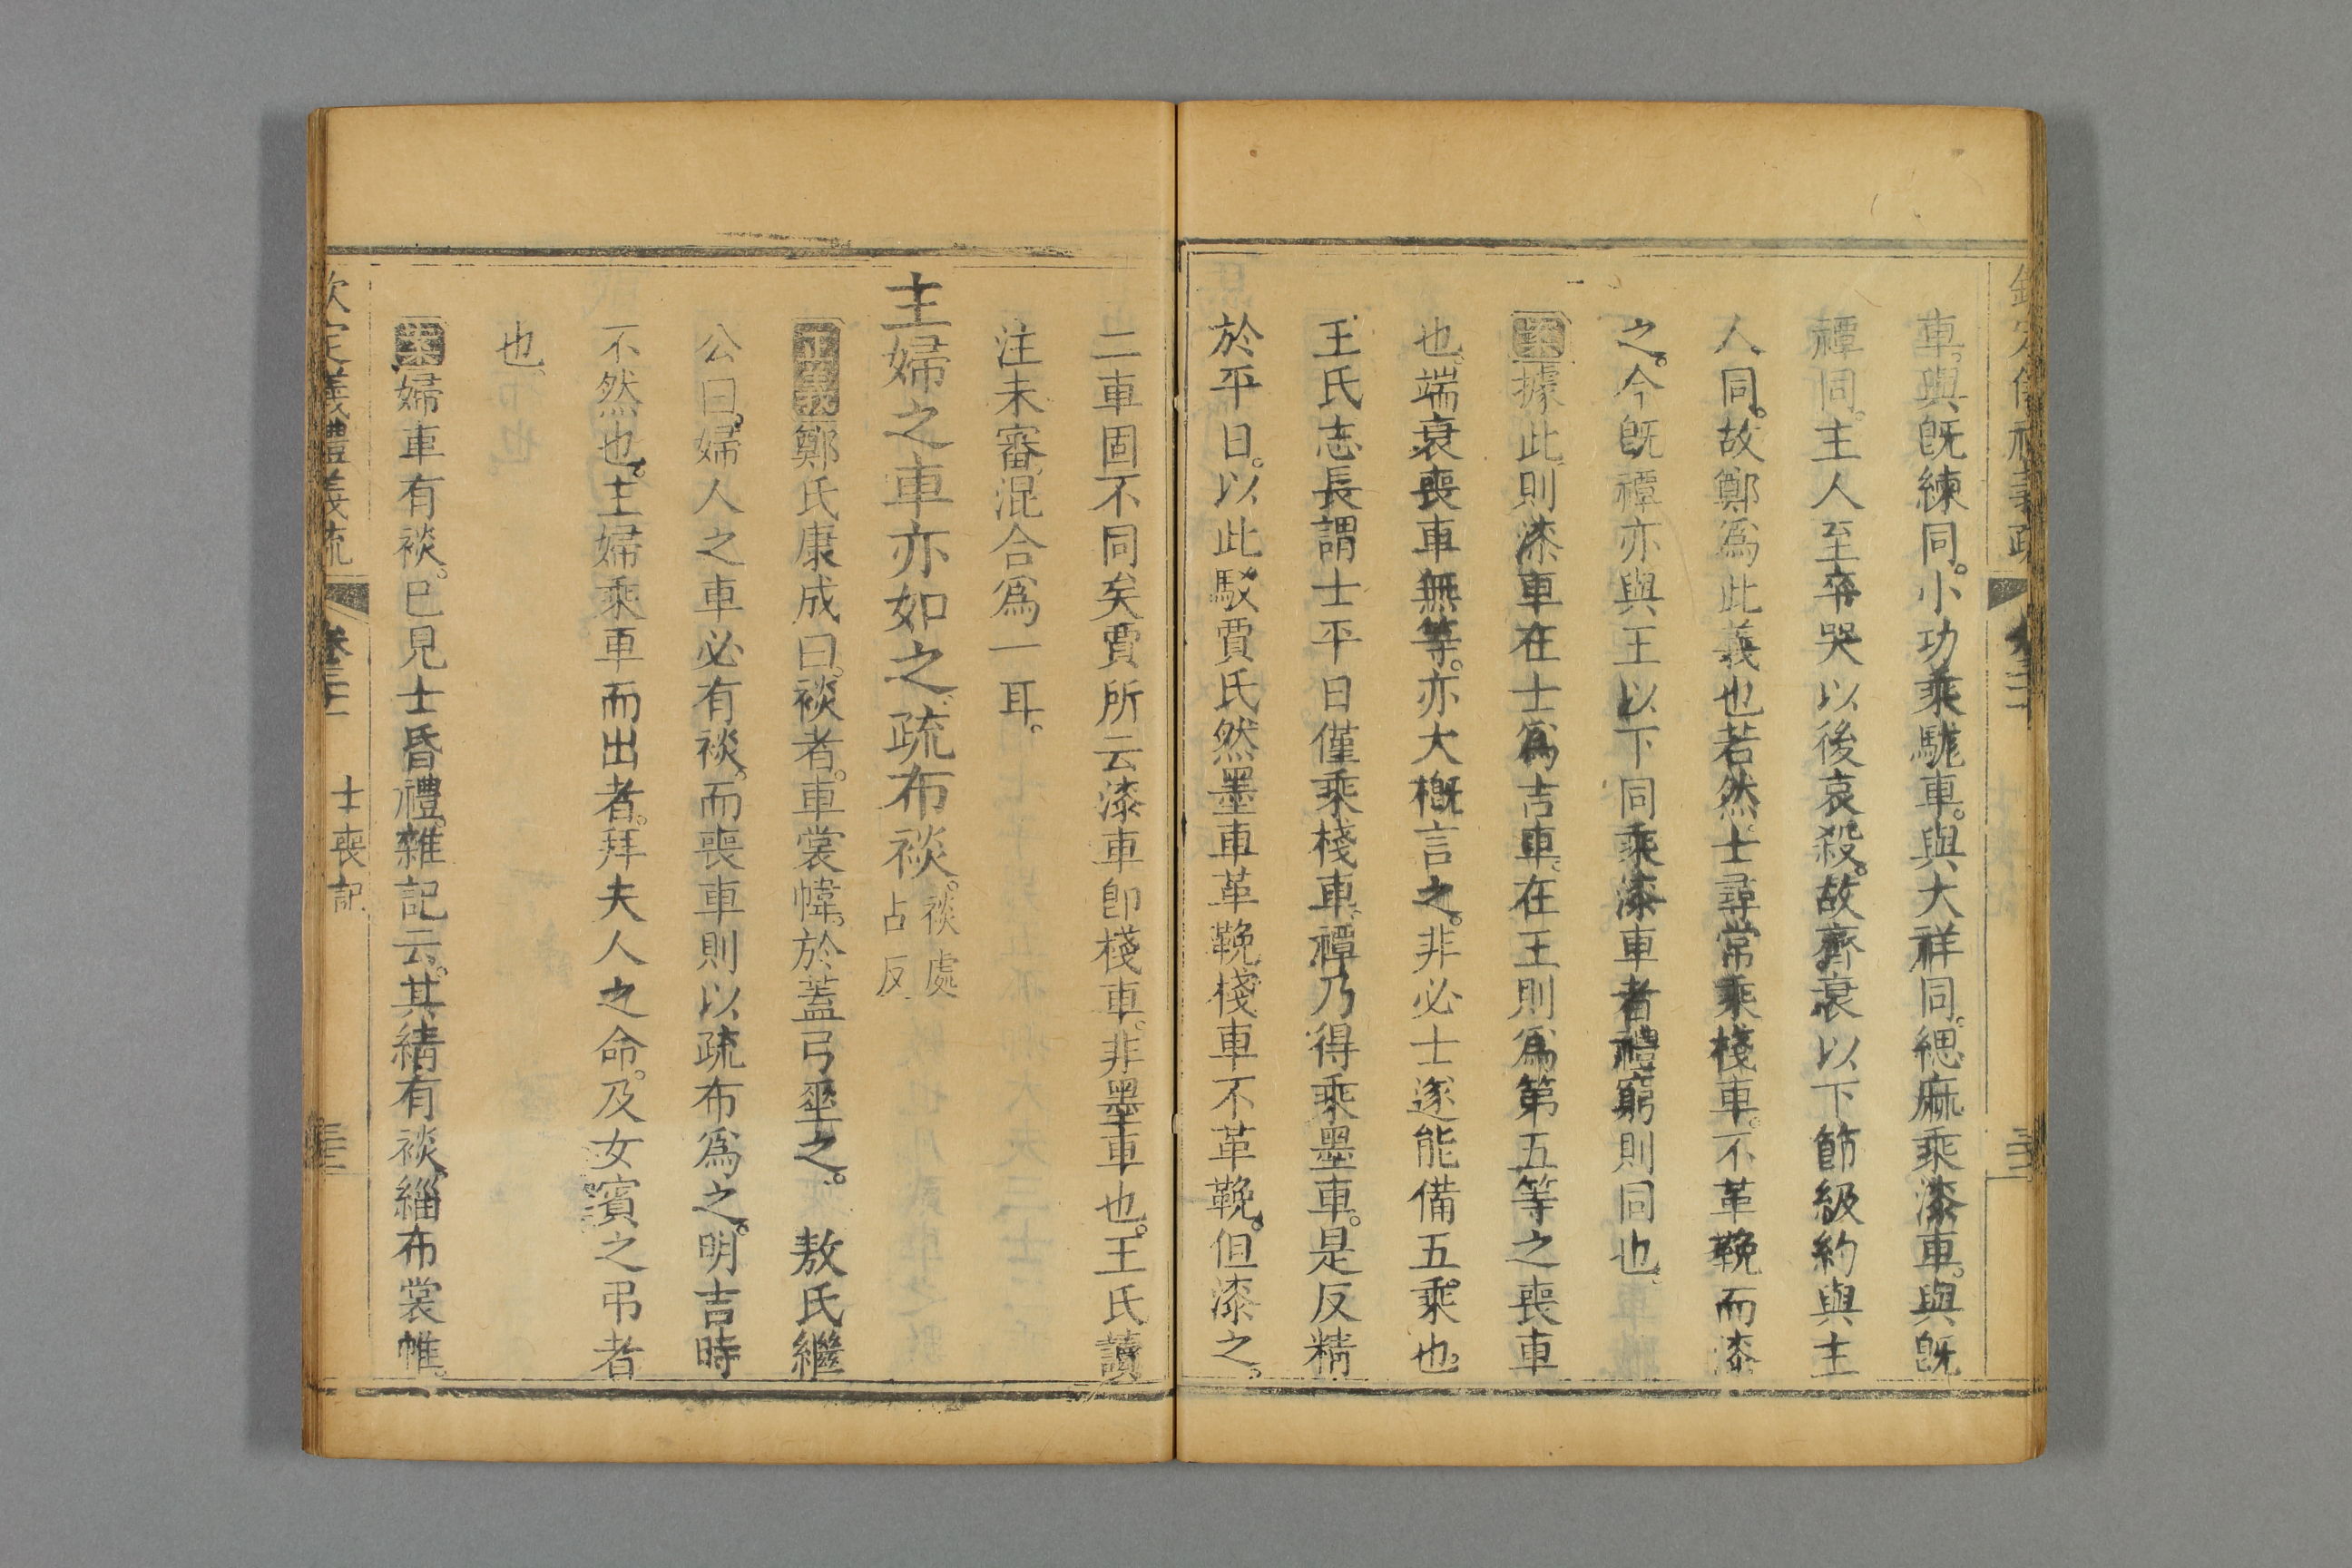 車。與旣練同。小功乘駹車。與大祥同。緦麻乘漆車。與旣
禫同。主人至卒哭以後哀殺。故齊衰以下節級約與主
人同。故鄭爲此義也若然。士尋常乘棧車。不革鞔而漆
之。今旣禫亦與王以下同乘漆車者禮窮則同也。
案據此則漆車在士爲吉車。在王則爲第五等之喪車
也。端衰喪車無等。亦大槪言之。非必士遂能備五乘也。
王氏志長謂士平日僅乘棧車。禫乃得乘墨車。是反精
於平日。以此駁賈氏然墨車革鞔棧車不革鞔。但漆之。
二車固不同矣賈所云漆車卽棧車。非墨車也。王氏讀
注未審。混合爲一耳。
主婦之車亦如之。疏布裧。裧處
占反
正義鄭氏康成曰。裧者。車裳幃。於蓋弓垂之。 敖氏繼
公曰。婦人之車必有裧。而喪車則以疏布爲之。明吉時
不然也。主婦乘車而出者。拜夫人之命。及女濱之弔者
也。
案婦車有裧。已見士昏禮。雜記云。其綪有裧。緇布裳帷。
欽定義禮義疏 卷三十一 士喪記